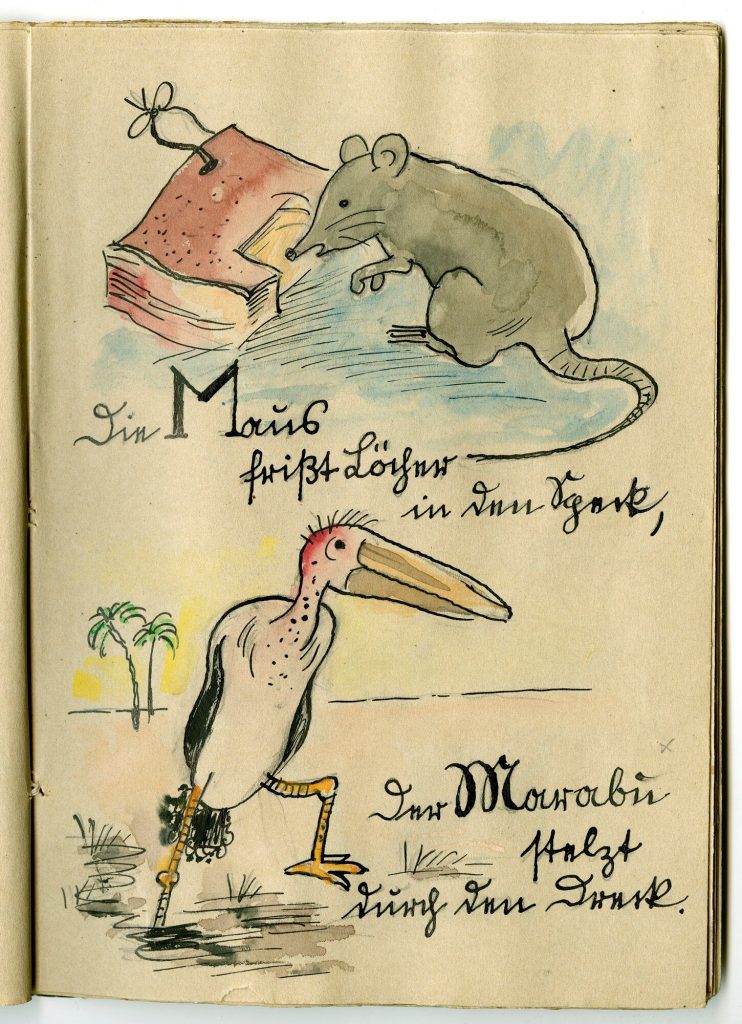 Die Maus
frißt Löcher
in den Speck,
Der Marabu
stelzt
durch den Dreck.